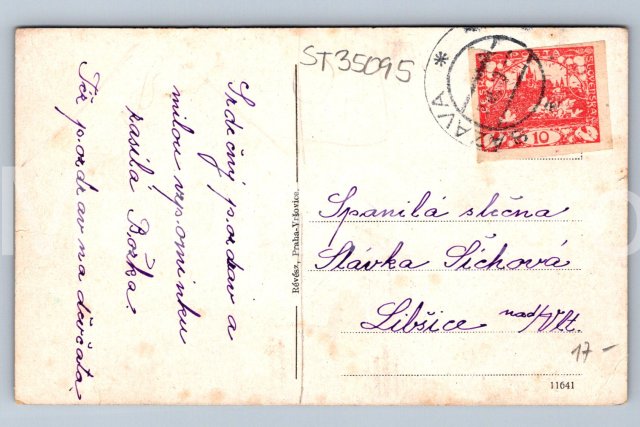 ST35095
SÁZAVA *
POŠTA
SLOVENSKÁ
10
Srdečný pozdrav a
milou vzpomínku
zasílá Božka.
Též pozdrav na děvčata.
Révész, Praha-Vršovice.
Spanilá slečna
Slávka Šichová
Libšice nad/Vlt.
17-
11641